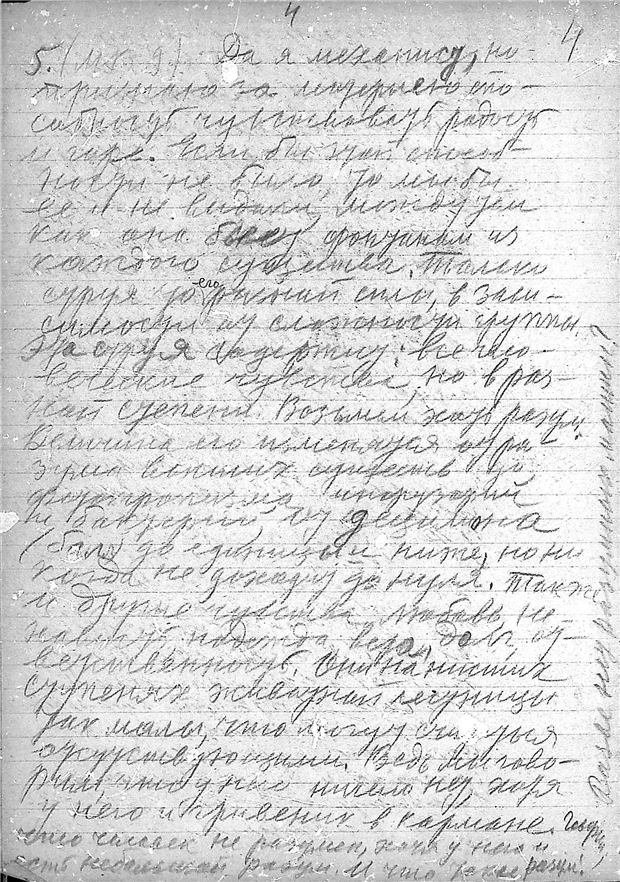 4
4
5. Да я механист, но
признаю за материей спо-
собность чувствовать радость
и горе. Если бы этой способ-
ности не было, то мы бы
ее и не видали, между тем
как она бьет фонтаном из
каждого существа. Только
струя его разной силы, в зави-
симости от сложности группы.
Эта струя содержит все чело-
веческие чувства, но в раз-
ной степени. Возьмем хоть разум.
Величина его изменяется от ра-
зума высших существ до
инфузорий
и бактерий от
до единицы и ниже, но ни-
когда не доходит до нуля. Также
и другие чувства любовь, не-
нависть надежда вера, долг, от-
ветственность. Они на низших
ступенях животной лестницы
так малы, что могут считаться
отсутствующими. Ведь мы гово-
рим что у нас ничего нет, хотя
у него и гривенник в кармане. Говорим,
что человек не разумен, хотя у него и
есть небольшой разум. И что такое разум!
Разве нет разумных машин?